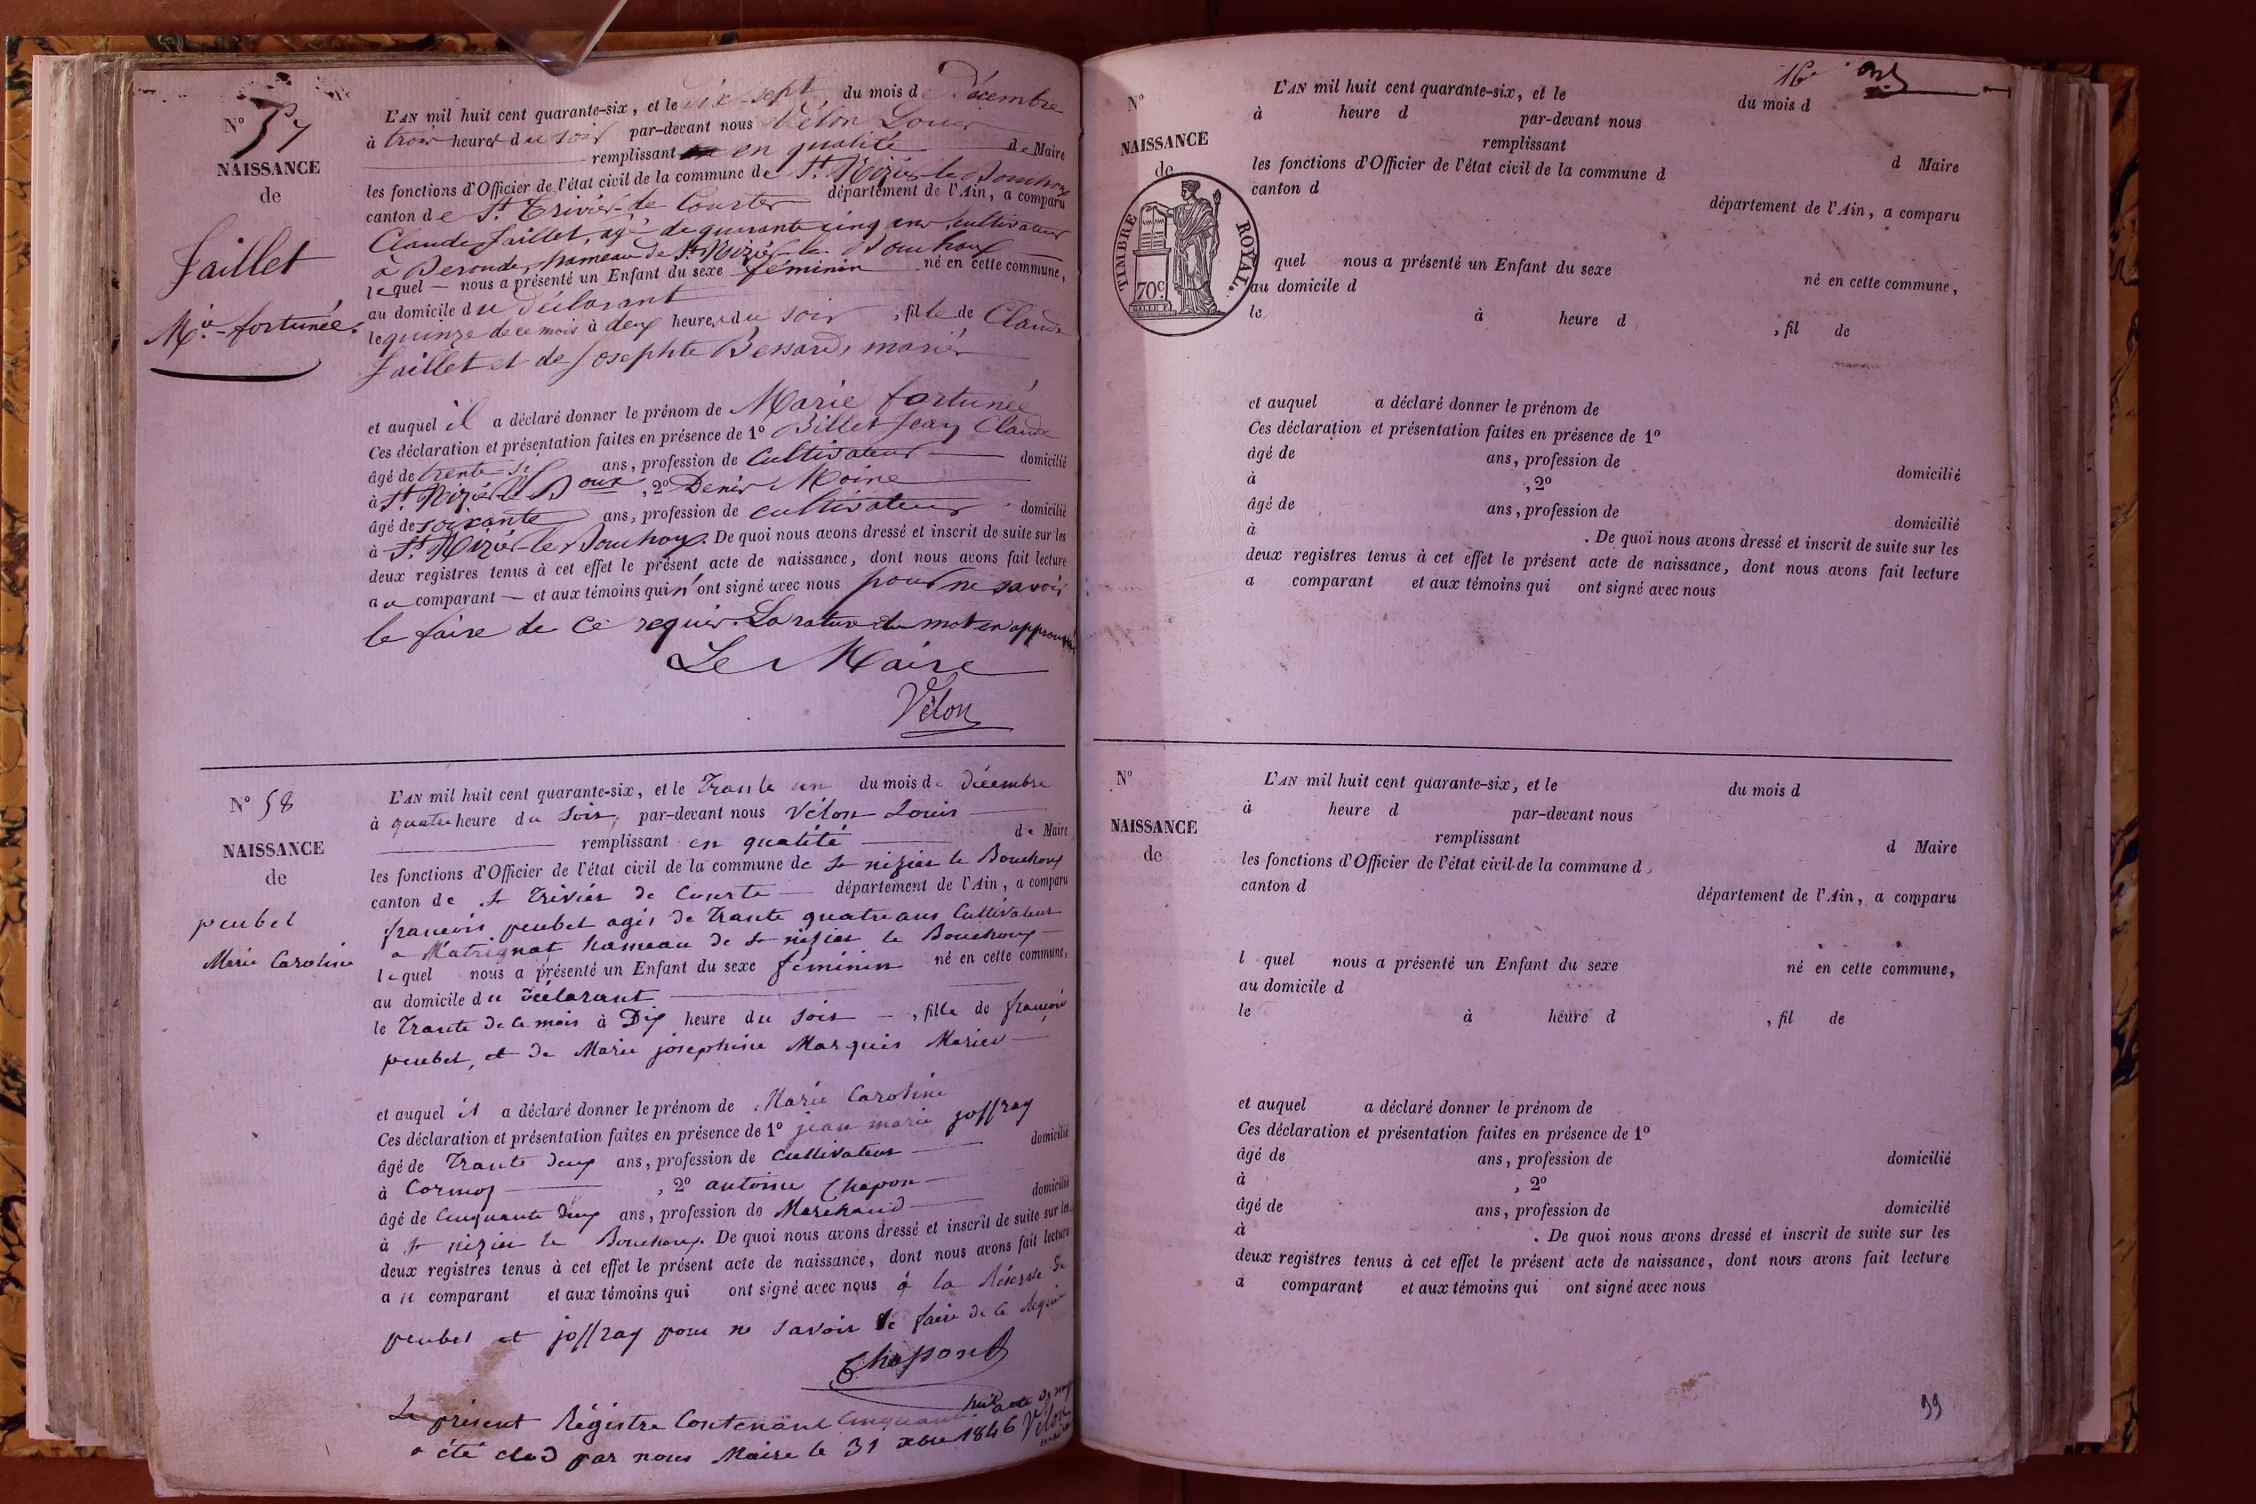 N° 57
NAISSANCE
de
Jaillet
M.ie fortunée.
L'AN mil huit cent quarante-six, et le dix sept, du mois de Décembre
à trois heures du soir par-devant nous Vélon Louis
remplissant en qualité de Maire
les fonctions d'Officier de l'état civil de la commune de St. Nizier le Bouchoux
canton de St Trivier de Courtes département de l'Ain, a comparu
Claude Jaillet, agé de quarante cinq ans, cultivateur
à hameau de St Nizier le Bouchoux
lequel nous a présenté un Enfant du sexe féminin né en cette commune,
au domicile du déclarant
le quinze de ce mois à deux heures du soir, fille de Claude
Jaillet et de Josephte Bessard, mariés
et auquel il a déclaré donner le prénom de Marie fortunée
Ces déclaration et présentation faites en présence de 1° Billet Jean Claude
âgé de trente ans, profession de Cultivateur domicilié
à St Nizier le Boux, 2° Denis Moine
âgé de soixante ans, profession de cultivateur domicilié
à St Nizier le Bouchoux. De quoi nous avons dressé et inscrit de suite sur les
deux registres tenus à cet effet le présent acte de naissance, dont nous avons fait lecture
au comparant et aux témoins qui n'ont signé avec nous pour ne savoir
le faire de ce requis. La rature du mot en approuvée
Le Maire
Vélon
N° 58
NAISSANCE
de
peubel
Marie Caroline
L'AN mil huit cent quarante-six, et le Trante un du mois de décembre
à quatre heure du soir, par-devant nous Vélon Louis
remplissant en qualité de Maire
les fonctions d'Officier de l'état civil de la commune de st nizier le Bouchoux
canton de st Trivier de Courte département de l'Ain, a comparu
francois peubel agés de Trante quatre ans Cultivateur
a Matrignat hameau de st nizier le Bouchoux
lequel nous a présenté un Enfant du sexe féminin né en cette commune,
au domicile du déclarant
le Trante de ce mois à Dix heure du soir, fille de françois
peubel, et de Marie josephine Marquis Mariés
et auquel il a déclaré donner le prénom de Marie Caroline
Ces déclaration et présentation faites en présence de 1° jean marie joffray
âgé de Trante deux ans, profession de Cultivateur domicilié
à Cormoz, 2° antoine Chapon
âgé de Cinquante deux ans, profession de Marchand domicilié
à st nizier le Bouchoux. De quoi nous avons dressé et inscrit de suite sur les
deux registres tenus à cet effet le présent acte de naissance, dont nous avons fait lecture
au comparant et aux témoins qui ont signé avec nous à la Réserve de
peubel et joffray pour ne savoir le faire de ce Requis
Chapont
Le présent Régistre Contenant Cinquante huit acte
a été clos par nous Maire le 31 xbre 1846 Vélon
16e
N°
NAISSANCE
de
TIMBRE ROYAL.
70c
L'AN mil huit cent quarante-six, et le du mois d
à heure d par-devant nous
remplissant d Maire
les fonctions d'Officier de l'état civil de la commune d
canton d département de l'Ain, a comparu
quel nous a présenté un Enfant du sexe né en cette commune,
au domicile d
le à heure d , fil de
et auquel a déclaré donner le prénom de
Ces déclaration et présentation faites en présence de 1°
âgé de ans, profession de domicilié
à , 2°
âgé de ans, profession de domicilié
à . De quoi nous avons dressé et inscrit de suite sur les
deux registres tenus à cet effet le présent acte de naissance, dont nous avons fait lecture
a comparant et aux témoins qui ont signé avec nous
N°
NAISSANCE
de
L'AN mil huit cent quarante-six, et le du mois d
à heure d par-devant nous
remplissant d Maire
les fonctions d'Officier de l'état civil de la commune d
canton d département de l'Ain, a comparu
l quel nous a présenté un Enfant du sexe né en cette commune,
au domicile d
le à heure d , fil de
et auquel a déclaré donner le prénom de
Ces déclaration et présentation faites en présence de 1°
âgé de ans, profession de domicilié
à , 2°
âgé de ans, profession de domicilié
à . De quoi nous avons dressé et inscrit de suite sur les
deux registres tenus à cet effet le présent acte de naissance, dont nous avons fait lecture
a comparant et aux témoins qui ont signé avec nous
99